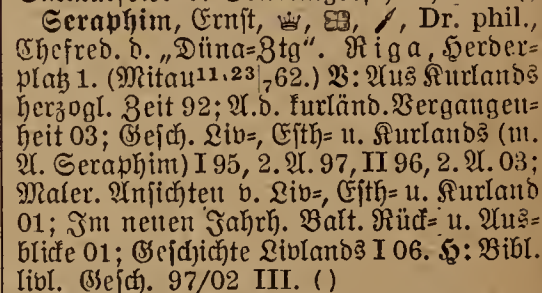 Seraphim, Ernst, Dr. phil.,
Chefred. d. „Düna=Ztg“. Riga, Herder=
platz 1. (Mitau 11.23|,62.) V: Aus Kurlands
herzogl. Zeit 92; A. d. kurländ. Vergangen=
heit 03; Gesch. Liv=, Esth= u. Kurlands (m.
A. Seraphim) I 95, 2. A. 97, II 96, 2. A. 03;
Maler. Ansichten v. Liv=, Esth= u. Kurland
01; Im neuen Jahrh. Balt. Rück= u. Aus=
blicke 01; Geschichte Livlands I 06. H: Bibl.
livl. Gesch. 97/02 III. ()